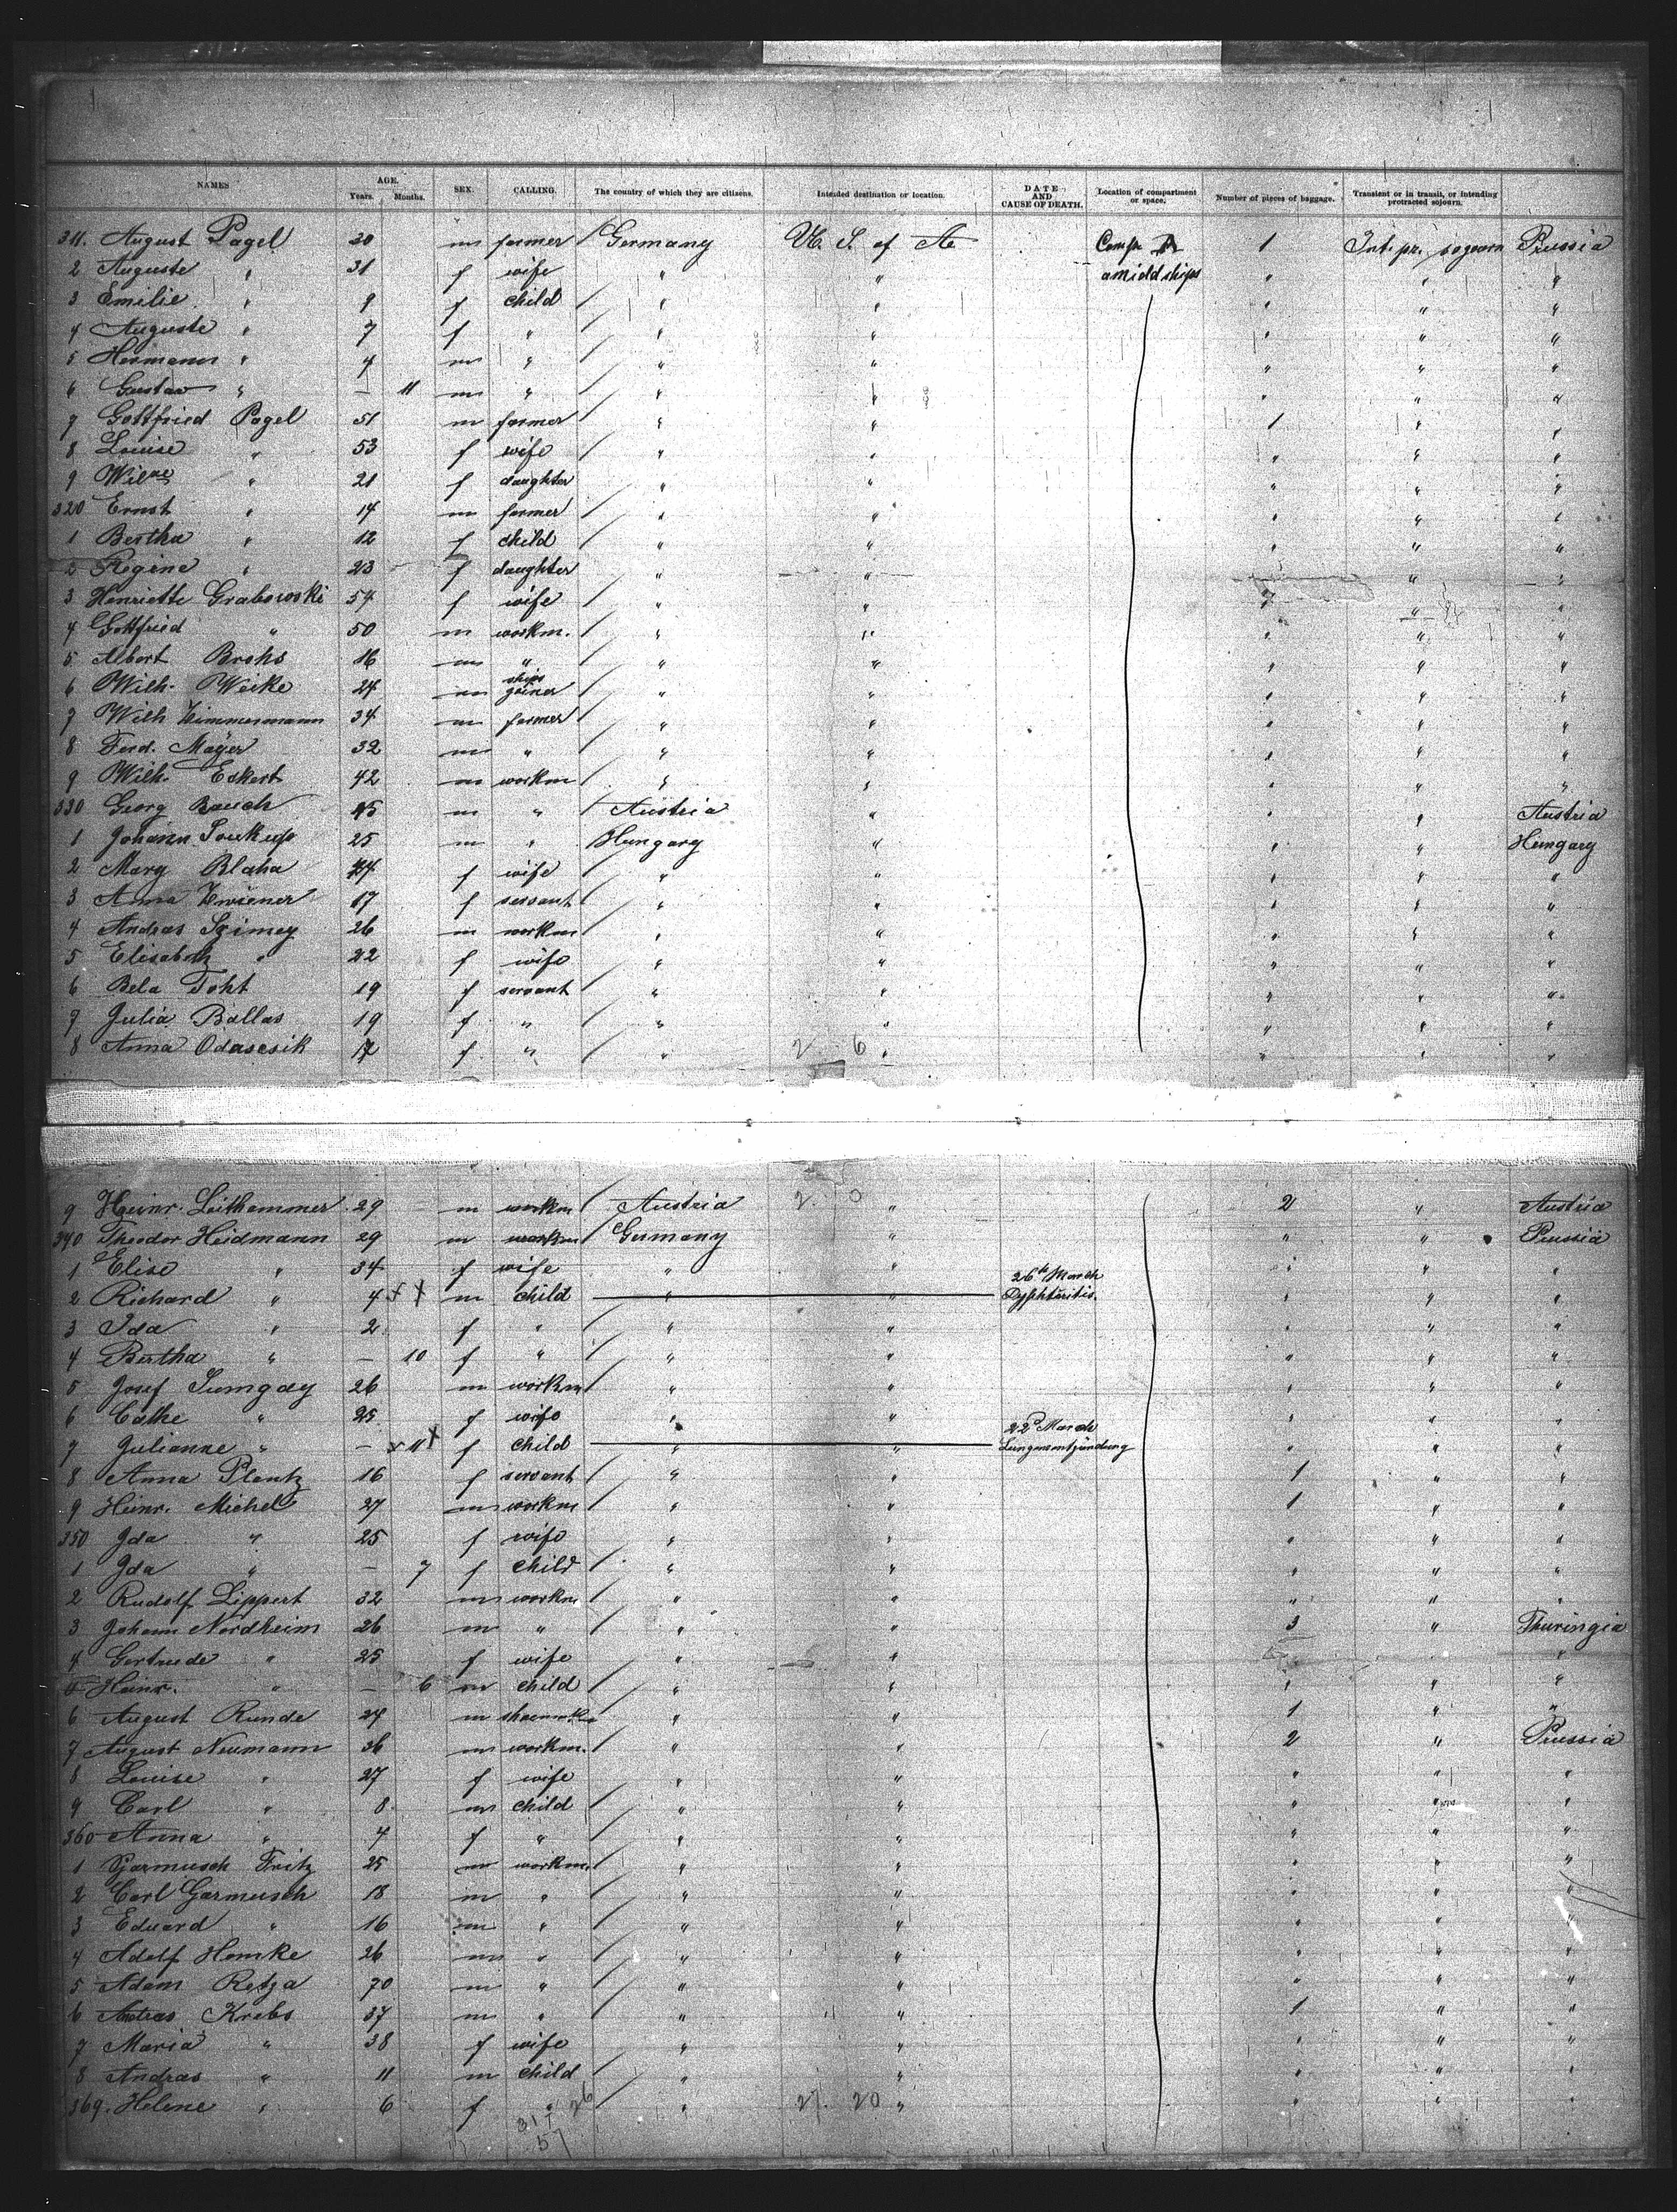 NAMES AGE. Years. Months. SEX. CALLING. The country of which they are citizens. Intended destination or location. DATE AND CAUSE OF DEATH. Location of compartment or space. Number of pieces of baggage. Transient or in transit, or intending protracted sojourn.
311. August Pagel 30 m farmer / Germany U. S. of A Comp. 1 Int. pr. sogourn Prussia
2 Auguste " 31 f wife / " " amiddships " " "
3 Emilie " 9 f child / " " " " "
4 Auguste " 7 f " / " " " " "
5 Hermann " 4 m " / " " " " "
6 Gustav " — 11 m " / " " " " "
7 Gottfried Pagel 51 m farmer / " " 1 " "
8 Louise " 53 f wife / " " " " "
9 Wilne " 21 f daughter / " " " " "
320 Ernst " 14 m farmer / " " " " "
1 Bertha " 12 f child / " " " " "
2 Regine " 23 f daughter / " " " "
3 Henriette Grabowski 54 f wife / " " " "
4 Gottfried " 50 m workm. / " " " " "
5 Albert Brohs 16 m " / " " " " "
6 Wilh. Weike 24 m ships / " " " " "
7 Wilh Zimmermann 34 m farmer / " " " " "
8 Ferd. Mayer 32 m " / " " " " "
9 Wilh. Eckert 42 m workm / " " " " "
330 Georg Bauch 45 m " / Austria " " " Austria
1 Johann Soukup 25 m " / Hungary " " " Hungary
2 Mary Blaha f wife / " " " " "
3 Anna Zwiener 17 f servant / " " " " "
4 Andras Szimey 26 m workm / " " " " "
5 Elisabeth " 22 f wife / " " " " "
6 Bela Toht 19 f servant / " " " " "
7 Julia Ballas 19 f " / " " " " "
8 Anna Odascsik 17 f " / " 2 6 " " " "
9 Heinr. Leithammer 29 m workm / Austria 2. 0 " 2 " Austria
340 Theodor Heidmann 29 m workm / Germany " " " Prussia
1 Elise " 34 f wife / " " " " "
2 Richard " 4 m child " " 26th March Dyphteritis. " " "
3 Ida " 2 f " / " " " " "
4 Bertha " — 10 f " / " " " " "
5 Josef Sumgay 26 m workm / " " " " "
6 Cathe " 25 f wife / " " " " "
7 Julianne " — 11 f child " " 22d March Lungenentzündung " " "
8 Anna Plentz 16 f servant / " " 1 " "
9 Heinr. Michel 27 m workm / " " 1 " "
350 Ida " 25 f wife / " " " " "
1 Ida " — 7 f child / " " " " "
2 Rudolf Lippert 32 m workm " " " " "
3 Johann Nordheim 26 m " / " " 3 " Thuringia
4 Gertrude " 25 f wife / " " " "
5 Heinr. " — 6 m child / " " " " "
6 August Runde 24 m shoemaker " " 1 " "
7 August Neumann 36 m workm. / " " 2 " Prussia
8 Louise " 27 f wife / " " " " "
9 Carl " 8 m child / " " " " "
360 Anna " 4 f " / " " " " "
1 Fritz 25 m workm. / " " " " "
2 Carl Garmusch 18 m " / " " " " "
3 Eduard " 16 m " / " " " " "
4 Adolf Homke 26 m " / " " " " "
5 Adam Retza 70 m " / " " " " "
6 Andras Krebs 37 m " / " " 1 " "
7 Maria " 38 f wife / " " " " "
8 Andras " 11 m child / " " " " "
369. Helene " 6 f " 26 / " 27. 20 " " " "
31
57